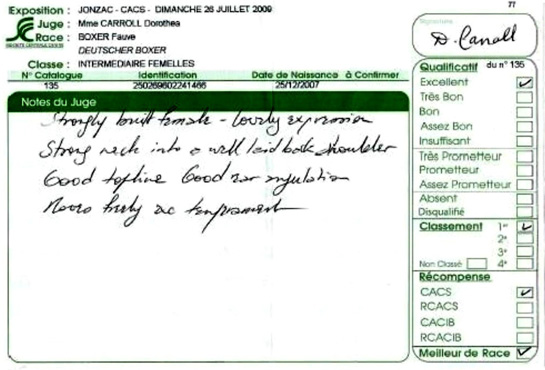 77
Exposition : JONZAC - CACS - DIMANCHE 26 JUILLET 2009
Juge : Mme CARROLL Dorothea
Race : BOXER Fauve
DEUTSCHER BOXER
Classe : INTERMEDIAIRE FEMELLES
N° Catalogue Identification Date de Naissance à Confirmer
135 250269602241466 25/12/2007
Notes du Juge
Strongly built female - lovely expression
Strong neck into a well laid back shoulder
Good topline Good rear angulation
Moves freely temprament
Signature
D. Carroll
Qualificatif du n° 135
Excellent
Très Bon
Bon
Assez Bon
Insuffisant
Très Prometteur
Prometteur
Assez Prometteur
Absent
Disqualifié
Classement 1er
2e
3e
Non Classé 4e
Récompense
CACS
RCACS
CACIB
RCACIB
Meilleur de Race